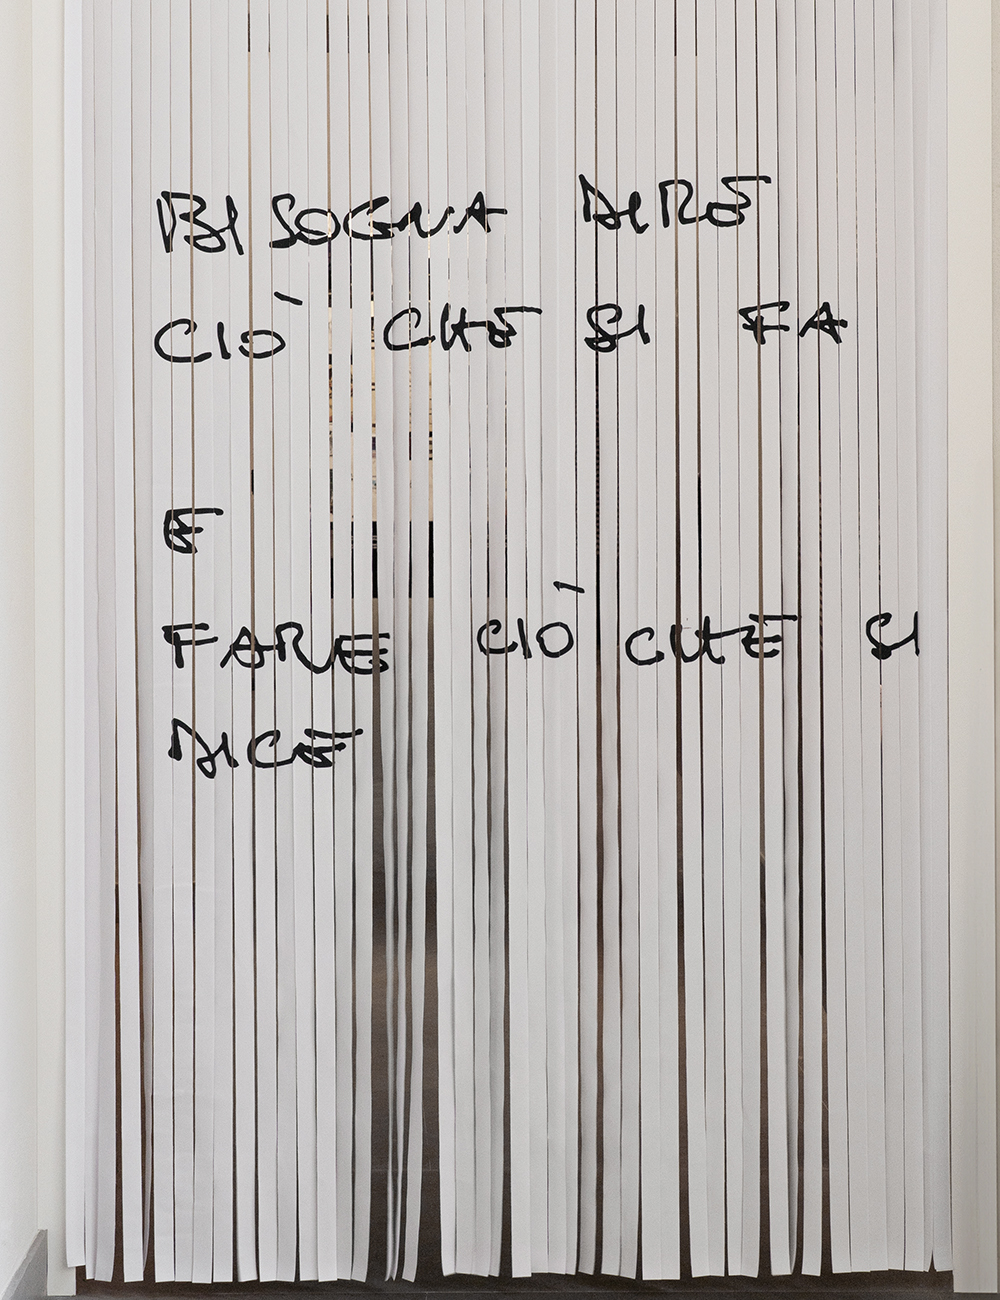 BISOGNA DIRE
CIÒ CHE SI FA
E
FARE CIÒ CHE SI
DICE